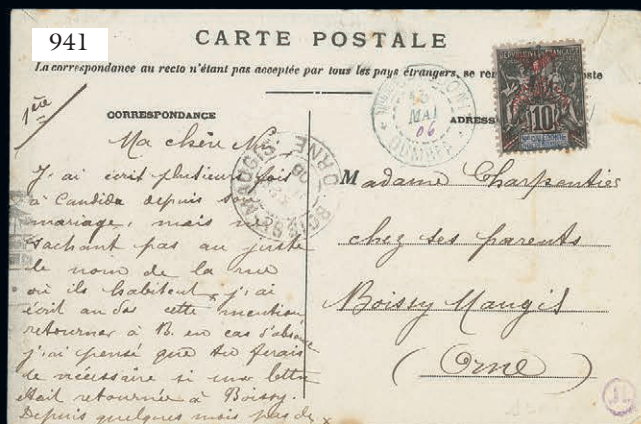 941
CARTE POSTALE
La correspondance au recto n'étant pas acceptée par tous les pays étrangers, se ren
oste
1ère
CORRESPONDANCE
ADRESS
Ma chère
J'ai écrit plusieurs fois
à Candida depuis son
mariage, mais ne
sachant pas au juste
le nom de la rue
où ils habitent, j'ai
écrit au dos cette mention
retourner à B. en cas d'absence
j'ai pensé que tu ferais
le nécessaire si une lettre
était retournée à Boissy.
Depuis quelques mois pas de
Madame Charpentier
chez ses parents
Boissy Maugis
(Orne)
MAI
06
DUMBEA
BOISSY-MAUGIS
ORNE
06
10
JL